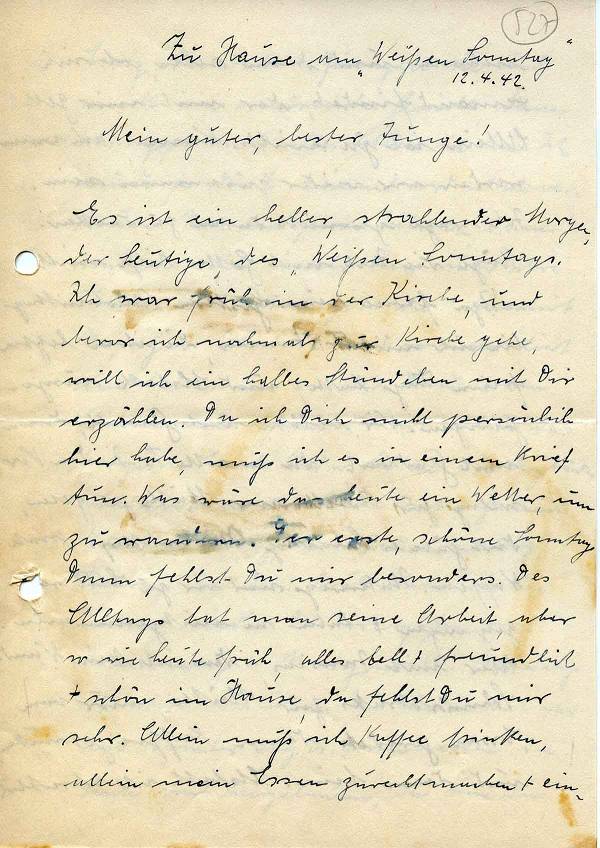 527
Zu Hause am "Weißen Sonntag"
12.4.42.
Mein guter, bester Junge!
Es ist ein heller, strahlender Morgen,
der heutige, des "Weißen Sonntags.
Ich war früh in der Kirche, und
bevor ich nochmals zur Kirche gehe,
will ich ein halbes Stündchen mit Dir
erzählen. Da ich Dich nicht persönlich
hier habe, muß ich es in einem Brief
tun. Was wäre das heute ein Wetter, um
zu wandern. Der erste, schöne Sonntag
Dann fehlst Du mir besonders. Des
Alltags hat man seine Arbeit, aber
so wie heute früh, alles hell + freundlich
+ schön im Hause, da fehlst Du mir
sehr. Allein muß ich Kaffee trinken,
allein mein Essen zurechtmachen + ein-